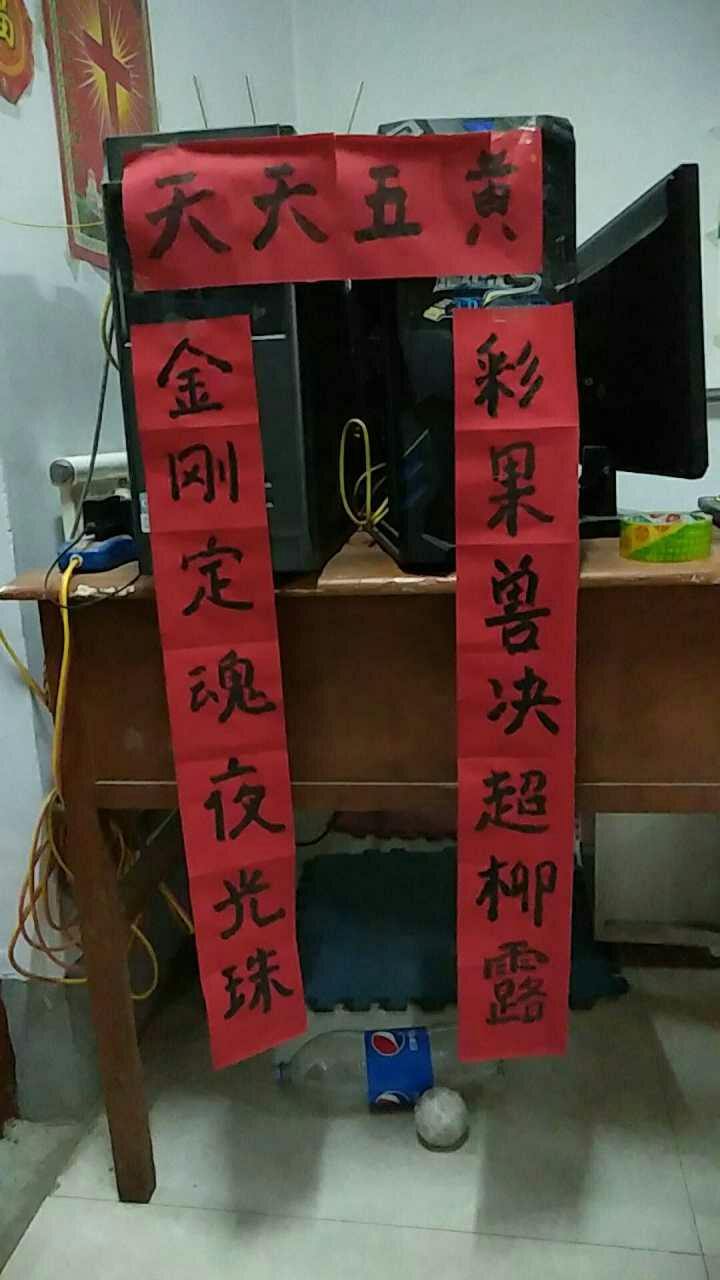 天天五黄
金刚定魂夜光珠
彩果兽决超柳露